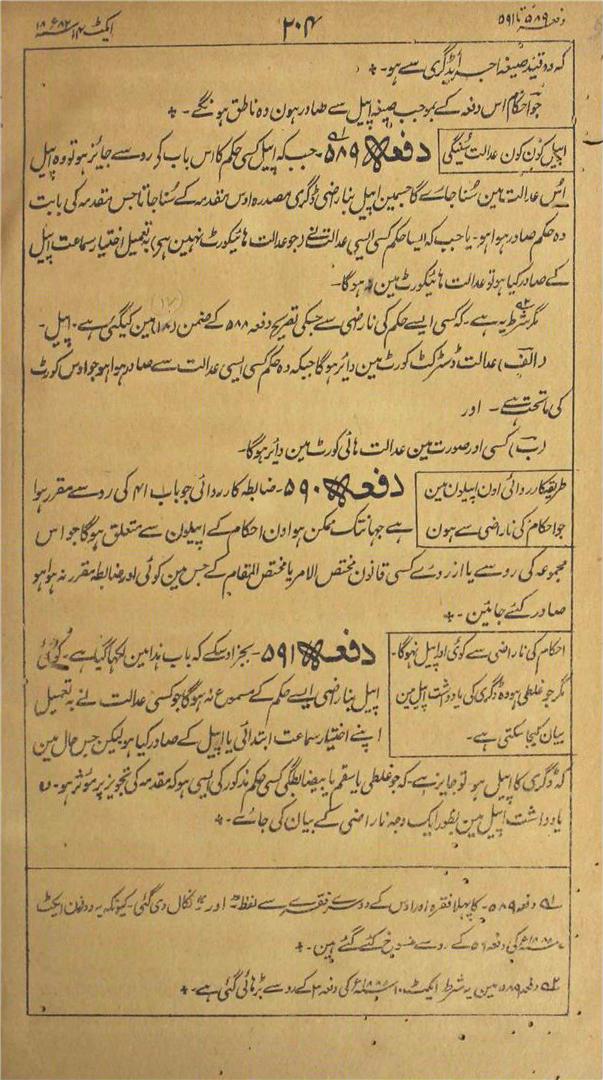 دفعہ ۵۸۹ تا ۵۹۱
۲۰۴
ایکٹ ۱۴ سنہ ۱۸۸۲ء
کہ وہ قید صیغہ اجراے ڈگری سے ہو۔
جو احکام اس دفعہ کے بموجب صیغہ اپیل سے صادر ہون وہ ناطق ہونگے۔
اپیل کون کون عدالت سنیگی
دفعہ ۵۸۹۔ جب کہ اپیل کسی حکم کا اس باب کی رو سے جائز ہو تو وہ اپیل
اُس عدالت مین سُنا جاے گا جسمین اپیل بناراضی ڈگری مصدرہ اوس مقدمہ کے سُنا جاتا جس مقدمہ کی بابت
وہ حکم صادر ہوا ہو۔ یا جب کہ ایسا حکم کسی ایسی عدالت نے (جو عدالت ہائیکورٹ نہین ہی) بہ تعمیل اختیار سماعت اپیل
کے صادر کیا ہو تو عدالت ہائیکورٹ مین ہوگا۔
مگر شرط یہ ہے۔ کہ کسی ایسے حکم کی ناراضی سے جسکی تصریح دفعہ ۵۸۸ کے ضمن (۱۸) مین کیگئی ہے۔ اپیل۔
(۱۷)
(الف) عدالت ڈسٹرکٹ کورٹ مین دائر ہوگا جبکہ وہ حکم کسی ایسی عدالت سے صادر ہوا ہو جو اوس کورٹ
کی ماتحت ہے۔ اور
(ب) کسی اور صورت مین عدالت ہائی کورٹ مین دائر ہوگا۔
طریقہ کارروائی اون اپیلون مین
جو احکام کی ناراضی سے ہون
دفعہ ۵۹۰۔ ضابطہ کارروائی جو باب ۴۱ کی رو سے مقرر ہوا
ہے جہانتک ممکن ہو اون احکام کے اپیلون سے متعلق ہوگا جو اس
مجموعہ کی رو سے یا از روے کسی قانون مختص الامر یا مختص المقام کے جس مین کوئی اور ضابطہ مقرر نہ ہوا ہو
صادر کئے جائین۔
احکام کی ناراضی سے کوئی اور اپیل نہوگا۔
مگر جو غلطی ہو وہ ڈگری کی یادداشت اپیل مین
بیان کیجا سکتی ہے۔
دفعہ ۵۹۱۔ بجز اوسکے کہ باب ہذا مین لکھا گیا ہے۔ کوئی
اپیل بناراضی ایسے حکم کے مسموع نہ ہوگا جو کسی عدالت نے بہ تعمیل
اپنے اختیار سماعت ابتدائی یا اپیل کے صادر کیا ہو لیکن جس حال مین
کہ ڈگری کا اپیل ہو تو جایز ہے۔ کہ جو غلطی یا سقم یا بیضابطگی کسی حکم مذکور کی ایسی ہو کہ مقدمہ کی تجویز پر موثر ہو۔ وہ
یادداشت اپیل مین بطور ایک وجہ ناراضی کے بیان کی جاے۔
۱؎ دفعہ ۵۸۹۔ کا پہلا فقرہ اور اوس کے دوسرے فقرے سے لفظ اور نکال دی گئی۔ کیونکہ یہ دونون ایکٹ
کی دفعہ ۵۶ کے رو سے منسوخ کئے گئے ہین۔
۲؎ دفعہ ۵۸۹ مین یہ شرط ایکٹ ۱۰ سنہ ۱۸۸۸ء کی دفعہ کے رو سے بڑہائی گئی ہے۔